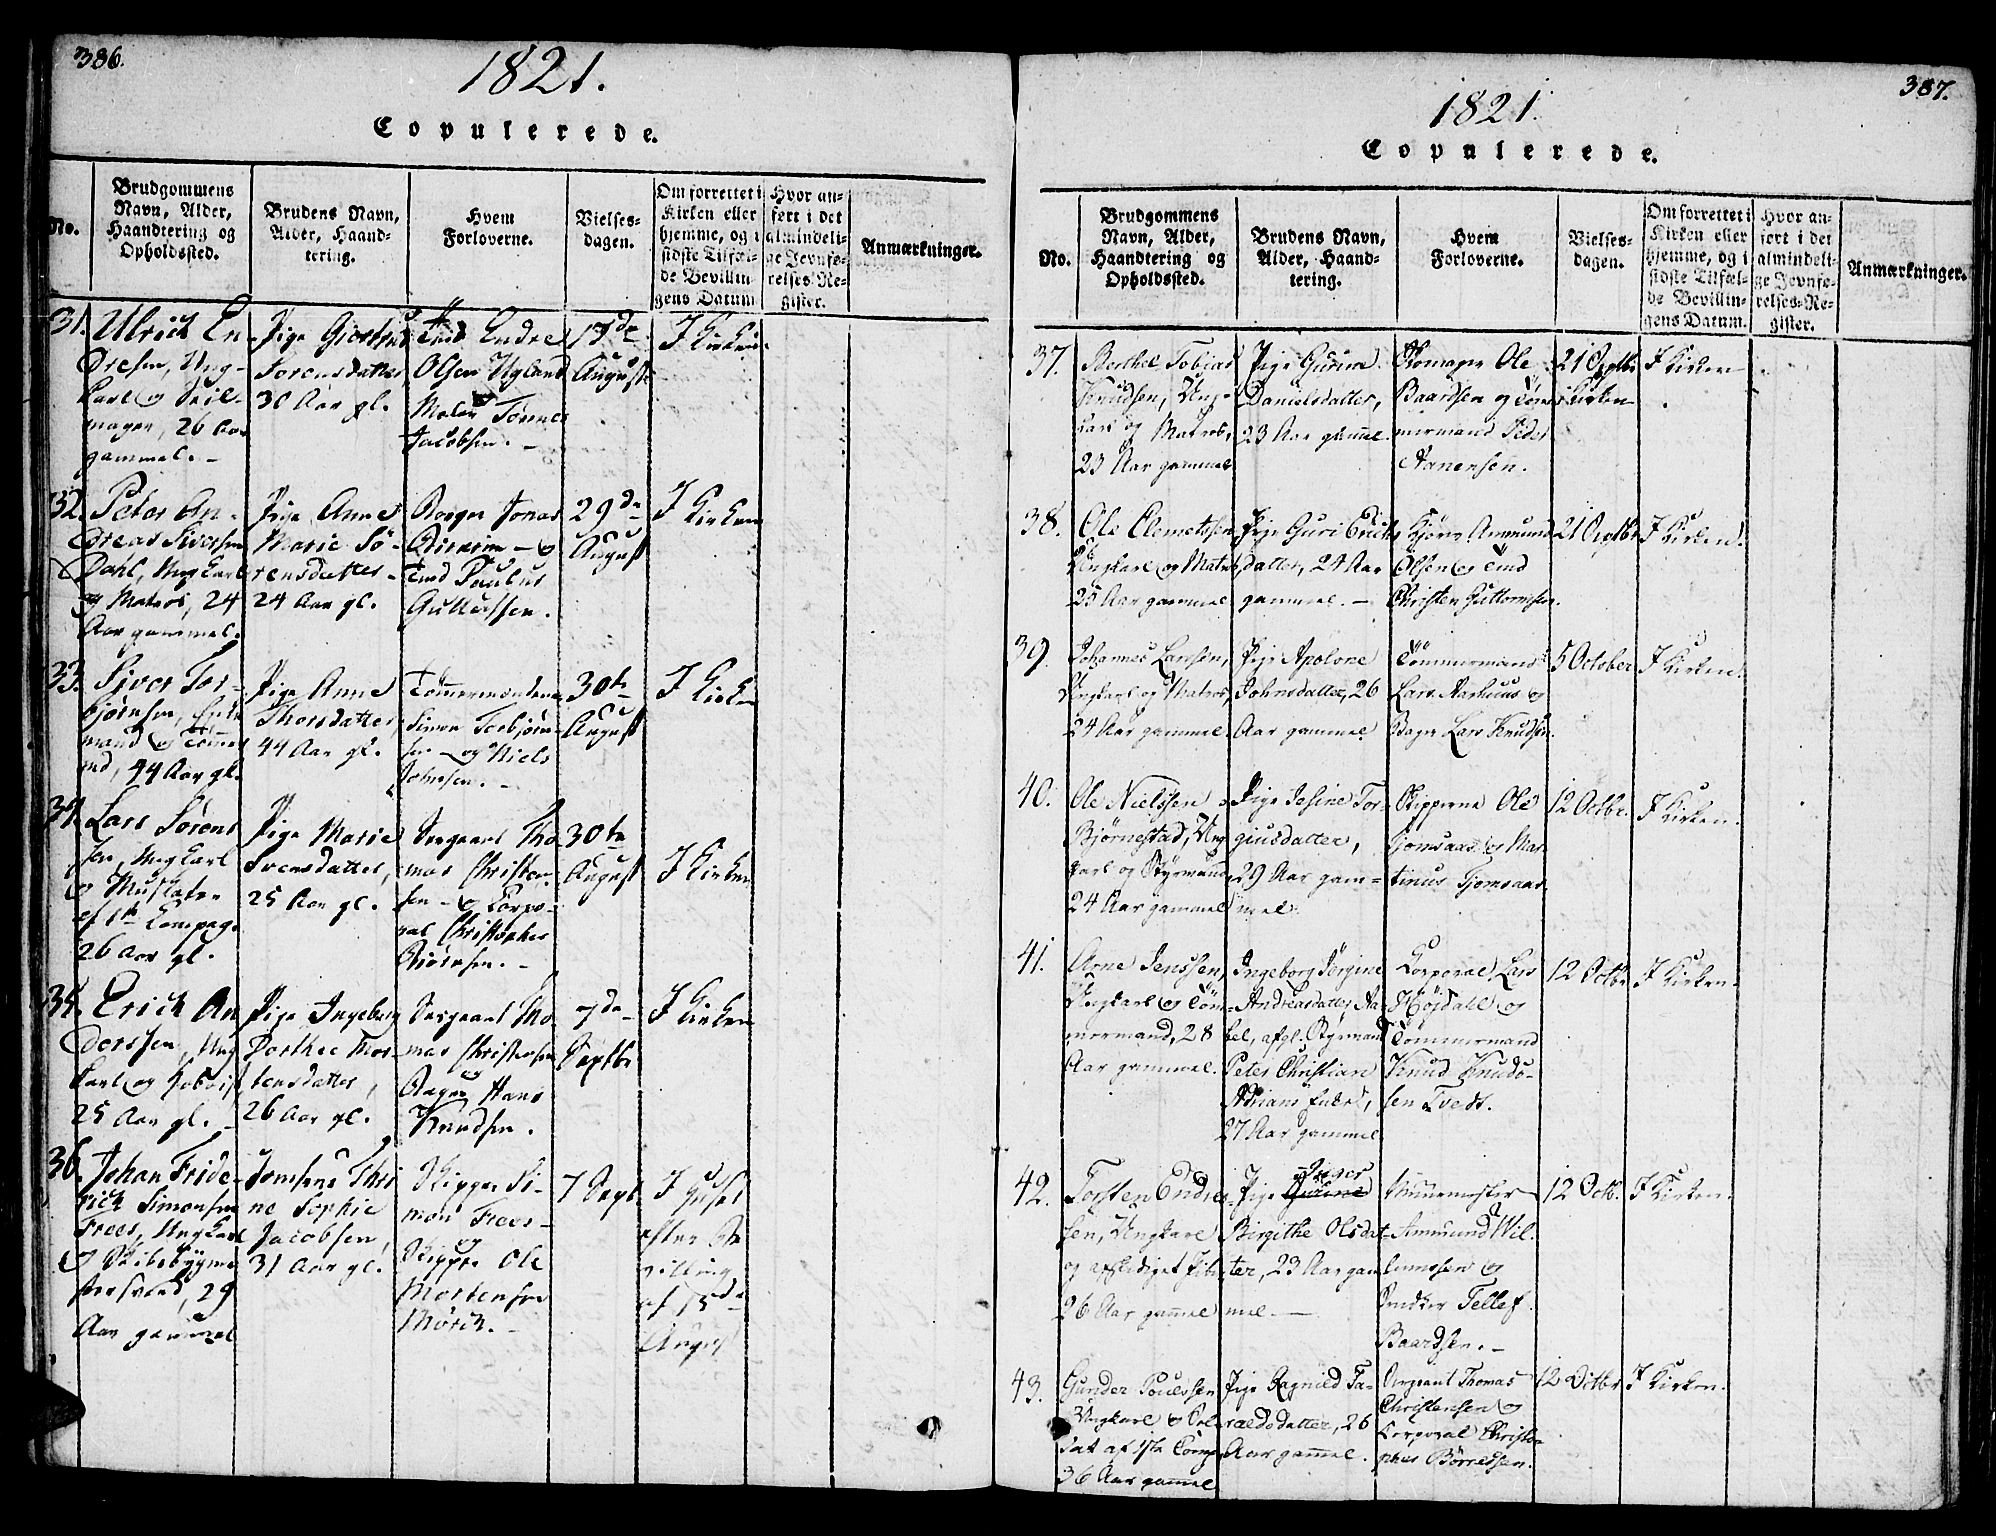 386.
1821.
Copulerede.
No.
Brudgommens
Navn, Alder,
Haandtering og
Opholdssted.
Brudens Navn,
Alder, Haand-
tering.
Hvem
Forloverne.
Vielses-
dagen.
Om forrettet i
Kirken eller
hjemme, og i
sidste Tilfæl-
de Bevillin-
gens Datum.
Hvor an-
ført i det
almindeli-
ge Jevnfø-
relses-Re-
gister.
Anmærkninger.
31.
Ulrich En-
dresen, Ung-
karl og Seil-
mager, 26 Aar
gammel. -
Pige
Sørensdatter
30 Aar gl.
Endre
Olsen Ugland
og
Maler Tønnes
Jacobsen. -
August
I Kirken.
32.
Peter An-
dreas Siversen
Dahl, Ungkarl
og Matros, 24
Aar gammel.
Pige Anne
Marie Sö-
rensdatter -
24 Aar gl.
Borger Jonas
og
Paulus
Gullussen.
29de
August
I Kirken
33.
Siver Tor-
bjørnsen, Enke-
mand og Tømmer-
md, 44 Aar gl.
Pige Anne
Thorsdatter,
44 Aar gl.
Tømmermændene
Simon Torbjørn-
sen - og Niels
Johnsen. -
30te
August
I Kirken
34.
Lars Sørens-
sen, Ungkarl
og
af 1te Compag.
26 Aar gl.
Pige Marie
Svensdatter,
25 Aar gl.
Sergeant Tho-
mas Christen-
sen - og Corpo-
ral Christopher
Børresen. -
30te
August
I Kirken
35.
Erich An-
derssen, Ung-
karl og
25 Aar gl. -
Pige Ingeborg
Dorthee Mor-
tensdatter,
26 Aar gl.
Sergeant Tho-
mas Christensen
og
Bager Hans
Knudsen.
7de
Septbr
I Kirken
36.
Johan Fride-
rich Simonsen
Frees, Ungkarl
og Skibsbygme-
stersvend, 29
Aar gammel
Jomfrue Thri-
ne Sophie
Jacobsen,
31 Aar gl.
Skipper Si-
mon Frees -
og
Skipper Ole
Mortensen
Mörch. -
7 Sept.
I Huset
efter Be-
villing
af 15de
August
387.
1821.
Copulerede.
No.
Brudgommens
Navn, Alder,
Haandtering og
Opholdssted.
Brudens Navn,
Alder, Haand-
tering.
Hvem
Forloverne.
Vielses-
dagen.
Om forrettet i
Kirken eller
hjemme, og i
sidste Tilfæl-
de Bevillin-
gens Datum.
Hvor an-
ført i det
almindeli-
ge Jevnfø-
relses-Re-
gister.
Anmærkninger.
37.
Berthel Tobias
Knudsen, Ung-
karl og Matros,
23 Aar gammel
Pige Gurine
Danielsdatter,
23 Aar gammel.
Skomager Ole
Baardsen og Töm-
mermand Peder
Aanensen.
21 Septbr
I Kirken
38.
Ole Clemetssen
Ungkarl og Matros,
25 Aar gammel
Pige Guri Erichs-
datter, 24 Aar
gammel. -
Anmund
Olsen og
Christen Guttormsen.
21 Septbr
I Kirken.
39.
Johannes Larsen,
Ungkarl og Matros,
24 Aar gammel
Pige Apolone
Johnsdatter, 26
Aar gammel
Tömmermand
Lars Aarhuus og
Bager Lars Knudsen.
5 October
I Kirken.
40.
Ole Nielssen
Björnestad, Ung-
karl og Styrmand
24 Aar gammel
Pige Jesine Tor-
giusdatter,
29 Aar gam-
mel.
Skipperne Ole
Tjomsaas og Mar-
tinus Tjomsaas
12 Octbr.
I Kirken.
41.
Arne Jenssen,
Ungkarl og Töm-
mermand, 28
Aar gammel.
Ingeborg Jörgine
Andreasdatter Aa-
bel, afgl. Styrmand
Peter Christian
Adrians Enke,
27 Aar gammel
Corporal Lars
Höjdahl og
Tömmermand
Knud Knud-
sen Tvedt.
12 Octbr
I Kirken.
42.
Torsten Endres-
sen, Ungkarl
og afskediget
26 Aar gammel
Inger
Pige Gurine
Birgithe Olsdat-
ter, 23 Aar gam-
mel. -
Muurmester
Ammund Wil-
lumssen og
Snedker Tellef
Baardsen. -
12 Octb.
I Kirken.
43.
Gunder Poulssen
Ungkarl og Sol-
dat af 1ste Comp.
36 Aar gammel
Pige Ragnild Ta-
raldsdatter, 26
Aar gammel.
Sergeant Thomas
Christensen og
Corporal Christo-
pher Börresen.
12 Octbr
I Kirken.